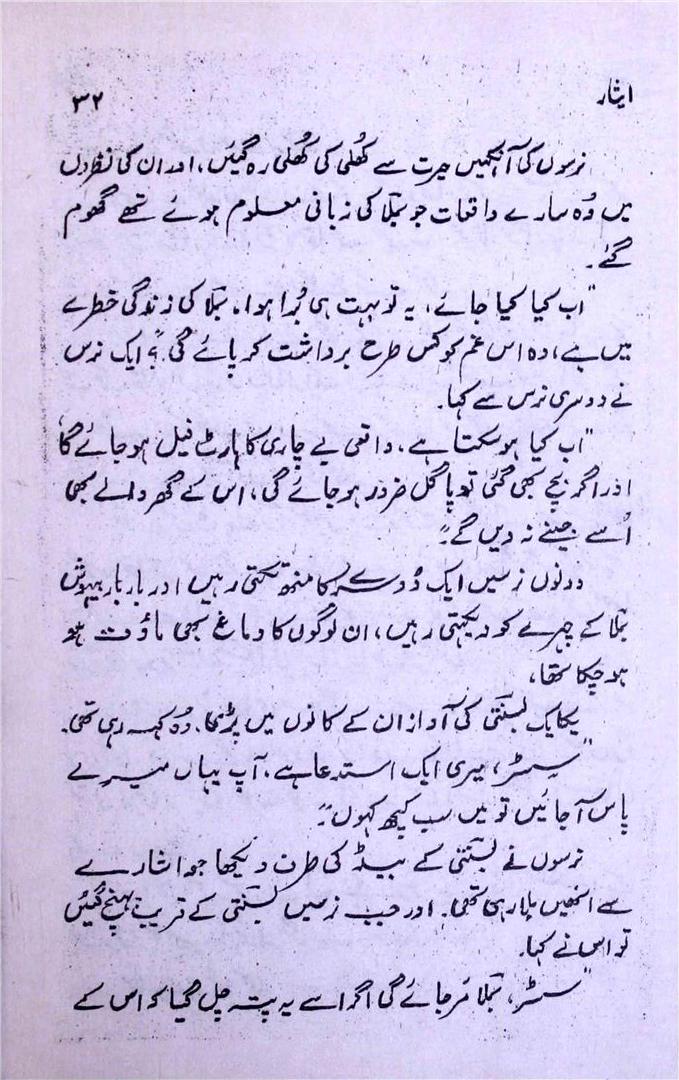 ایثار
۳۲
نرسوں کی آنکھیں حیرت سے کھُلی کی کھُلی رہ گئیں، اور ان کی نظروں
میں وُہ سارے واقعات جو بملا کی زبانی معلوم ہوئے تھے گھوم
گئے۔
"اب کیا کیا جائے، یہ تو بہت ہی بُرا ہوا، بملا کی زندگی خطرے
میں ہے، وہ اس غم کو کس طرح برداشت کر پائے گی؟" ایک نرس
نے دوسری نرس سے کہا۔
"اب کیا ہو سکتا ہے، واقعی بے چاری کا ہارٹ فیل ہو جائے گا
اور اگر بچ بھی گئی تو پاگل ضرور ہو جائے گی، اس کے گھر والے بھی
اُسے جینے نہ دیں گے۔"
دونوں نرسیں ایک دُوسرے کا منھ تکتی رہیں اور بار بار بیہوش
بملا کے چہرے کو دیکھتی رہیں، ان لوگوں کا دماغ بھی ماؤف ہو
ہو چکا تھا،
یکایک بسنتی کی آواز ان کے کانوں میں پڑی، وُہ کہہ رہی تھی۔
"سسٹر، میری ایک استدعا ہے، آپ یہاں میرے
پاس آ جائیں تو میں سب کچھ کہوں۔"
نرسوں نے بسنتی کے بیڈ کی طرف دیکھا جو اشارے
سے انھیں بلا رہی تھی۔ اور جب نرسیں بسنتی کے قریب پہنچ گئیں
تو اس نے کہا۔
"سسٹر، بملا مَر جائے گی اگر اسے یہ پتہ چل گیا کہ اس کے